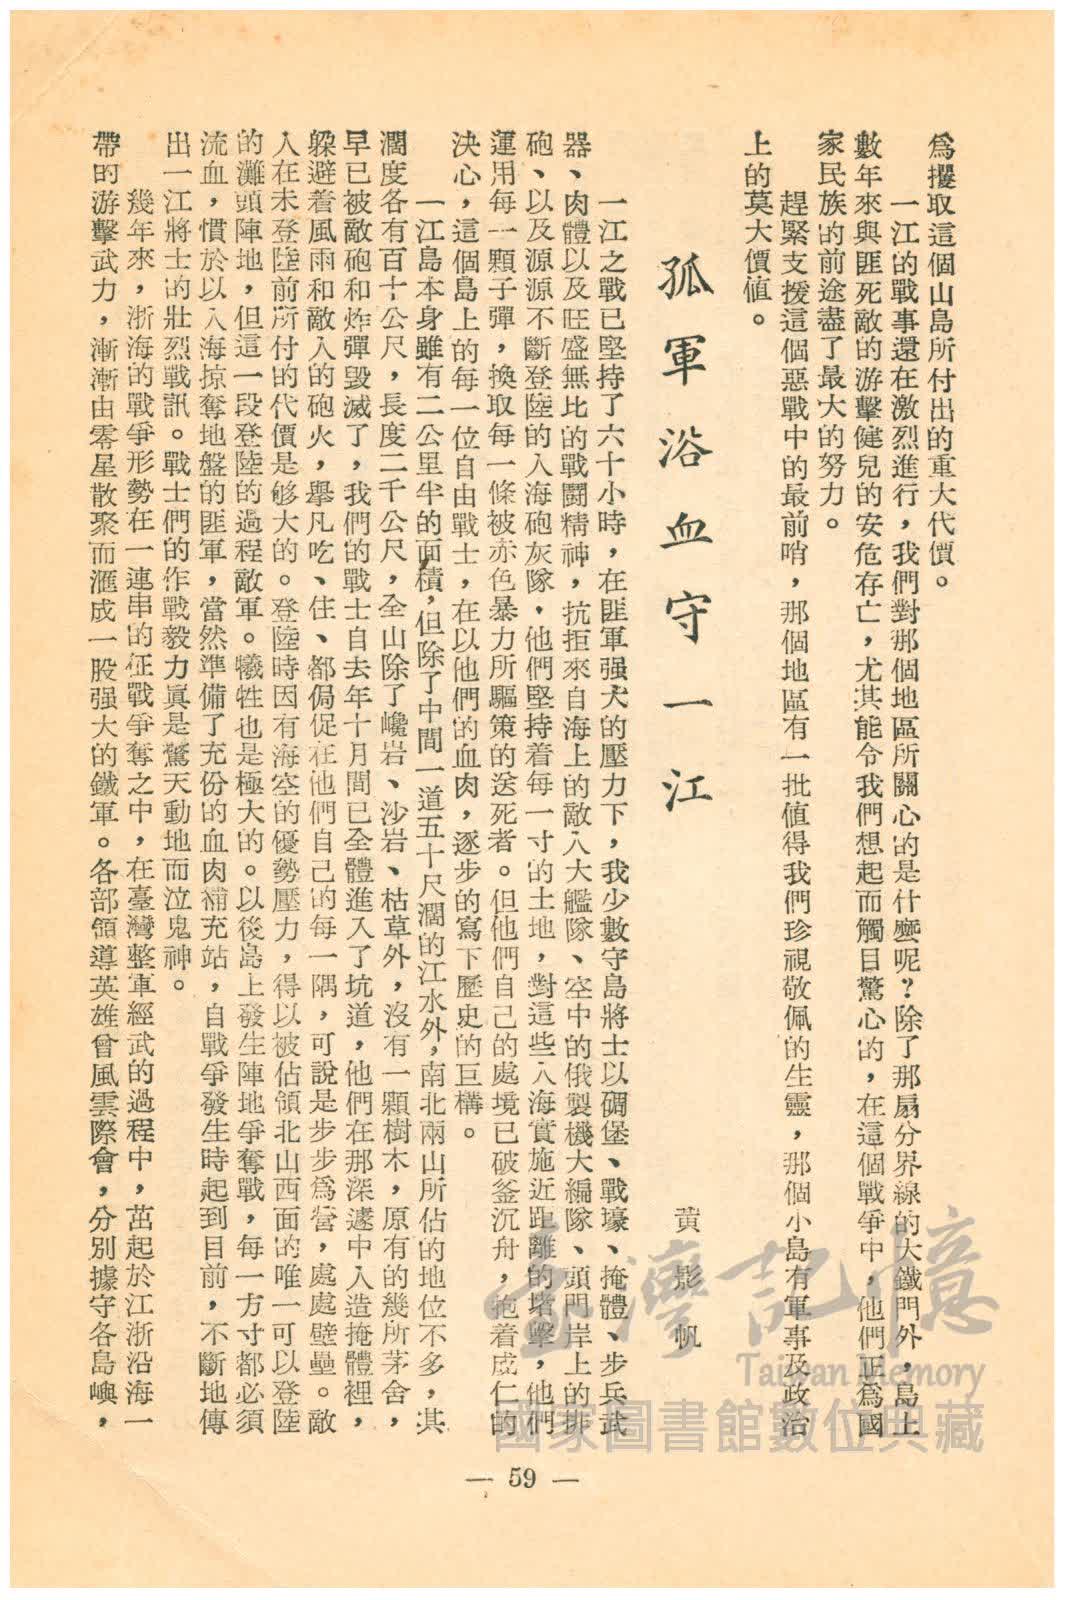 爲攫取這個山島所付出的重大代價。
一江的戰事還在激烈進行，我們對那個地區所關心的是什麽呢？除了那扇分界線的大鐵門外，島上
數年來與匪死敵的游擊健兒的安危存亡，尤其能令我們想起而觸目驚心的，在這個戰爭中，他們正爲國
家民族的前途盡了最大的努力。
趕緊支援這個惡戰中的最前哨，那個地區有一批值得我們珍視敬佩的生靈，那個小島有軍事及政治
上的莫大價值。
孤軍浴血守一江
黃影帆
一江之戰已堅持了六十小時，在匪軍强大的壓力下，我少數守島將士以碉堡、戰壕、掩體、步兵武
器、肉體以及旺盛無比的戰鬪精神，抗拒來自海上的敵人大艦隊、空中的俄製機大編隊、頭門岸上的排
砲、以及源源不斷登陸的人海砲灰隊，他們堅持着每一寸的土地，對這些人海實施近距離的堵擊，他們
運用每一顆子彈，換取每一條被赤色暴力所驅策的送死者。但他們自己的處境已破釜沉舟，抱着成仁的
決心，這個島上的每一位自由戰士，在以他們的血肉，逐步的寫下歷史的巨構。
一江島本身雖有二公里半的面積，但除了中間一道五十尺濶的江水外，南北兩山所佔的地位不多，其
濶度各有百十公尺，長度二千公尺，全山除了巉岩、沙岩、枯草外，沒有一顆樹木，原有的幾所茅舍，
早已被敵砲和炸彈毀滅了，我們的戰士自去年十月間已全體進入了坑道，他們在那深邃中人造掩體裡，
躲避着風雨和敵人的砲火，舉凡吃、住、都侷促在他們自己的每一隅，可說是步步爲營，處處壁壘。敵
人在未登陸前所付的代價是够大的。登陸時因有海空的優勢壓力，得以被佔領北山西面的唯一可以登陸
的灘頭陣地，但這一段登陸的過程敵軍。犧牲也是極大的。以後島上發生陣地爭奪戰，每一方寸都必須
流血，慣於以人海掠奪地盤的匪軍，當然準備了充份的血肉補充站，自戰爭發生時起到目前，不斷地傳
出一江將士的壯烈戰訊。戰士們的作戰毅力眞是驚天動地而泣鬼神。
幾年來，浙海的戰爭形勢在一連串的征戰爭奪之中，在臺灣整軍經武的過程中，茁起於江浙沿海一
帶的游擊武力，漸漸由零星散聚而滙成一股强大的鐵軍。各部領導英雄曾風雲際會，分別據守各島嶼，
— 59 —
臺灣記憶
Taiwan Memory
國家圖書館數位典藏